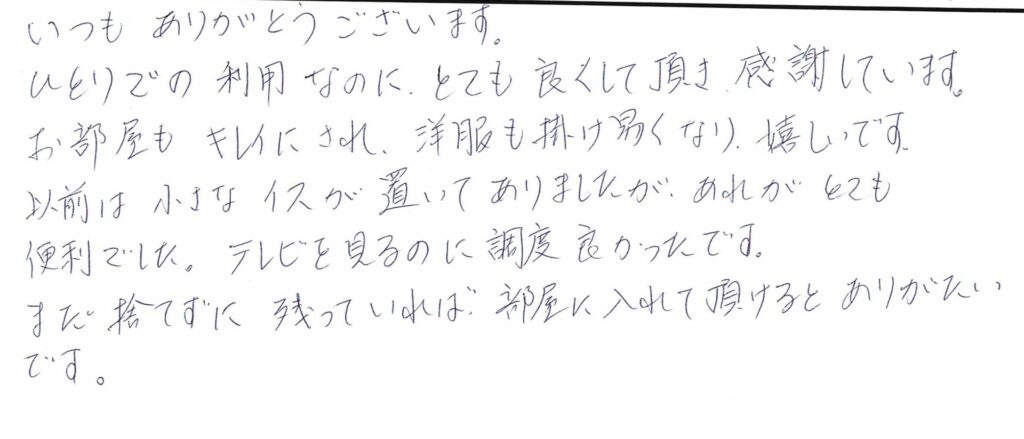 いつも ありがとうございます。
ひとりでの 利用 なのに、とても 良くして頂き 感謝しています。
お部屋も キレイにされ、洋服も掛け易くなり、嬉しいです。
以前は 小さな イスが 置いてありましたが、あれが とても
便利でした。テレビを見るのに調度良かったです。
まだ 捨てずに 残っていれば、部屋に入れて頂けると ありがたい
です。